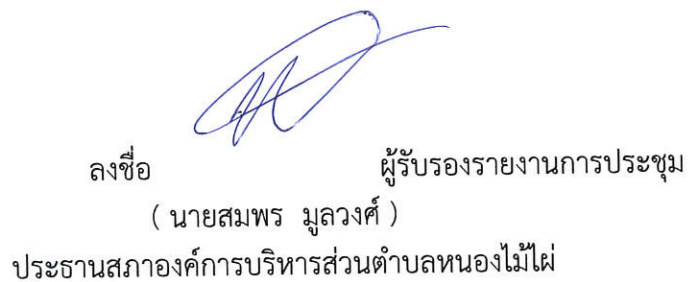 ลงชื่อ ผู้รับรองรายงานการประชุม
( นายสมพร มูลวงศ์ )
ประธานสภาองค์การบริหารส่วนตำบลหนองไม้ไผ่